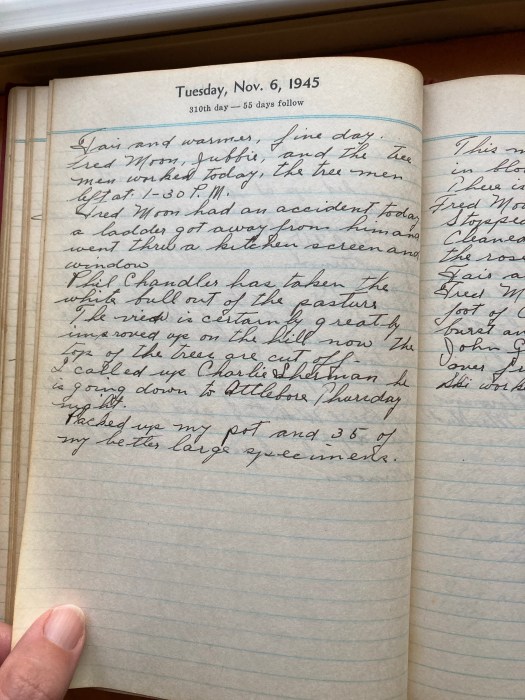 Tuesday, Nov. 6, 1945
310th day — 55 days follow
Fair and warmer, fine day.
Fred Moon, Jubbie, and the tree
men worked today, the tree men
left at 1-30 P.M.
Fred Moon had an accident today
a ladder got away from him and
went thru a kitchen screen and
window
Phil Chandler has taken the
white bull out of the pasture
The view is certainly greatly
improved up on the hill now the
tops of the trees are cut off.
I called up Charlie Sherman he
is going down to Attleboro Thursday
night.
Packed up my pot and 35 of
my better large specimens.
This m
in blo
There is
Fred Moo
Stopped
Cleaned
the rose
Fair a
Fred M
foot of
burst an
John G
over
Ski work